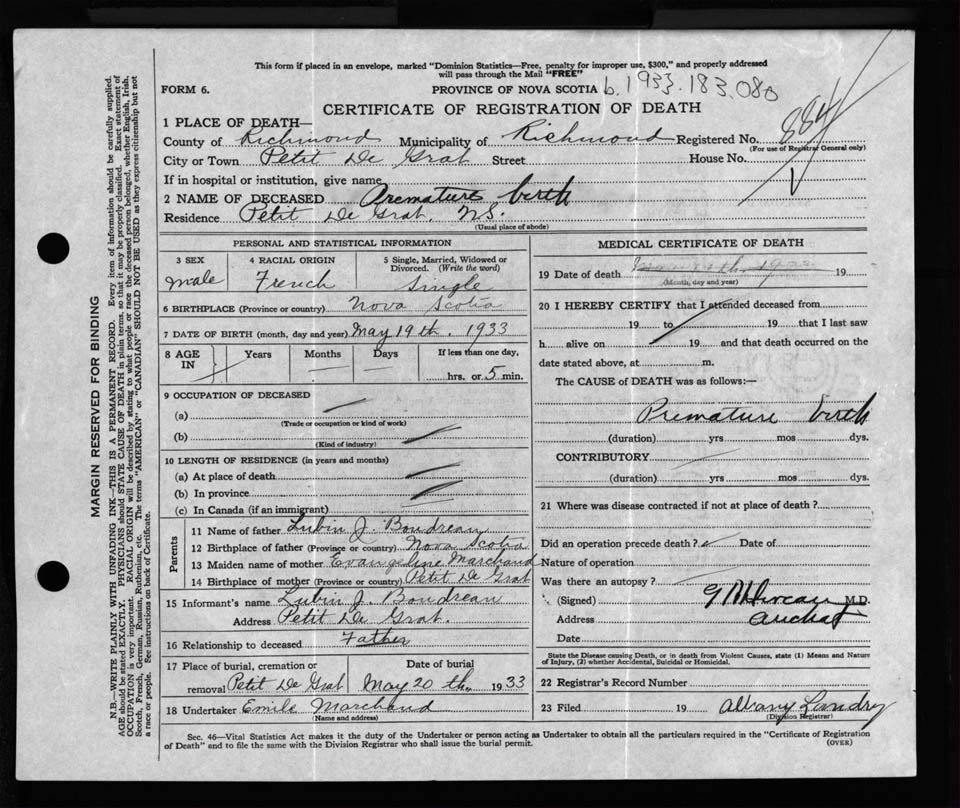 This form if placed in an envelope, marked "Dominion Statistics—Free, penalty for improper use, $300," and properly addressed
will pass through the Mail "FREE"
FORM 6.
PROVINCE OF NOVA SCOTIA b. 1933.183,080
CERTIFICATE OF REGISTRATION OF DEATH
884
1 PLACE OF DEATH—
County of Richmond Municipality of Richmond Registered No.
(For use of Registrar General only)
City or Town Petit De Grat Street House No.
If in hospital or institution, give name
2 NAME OF DECEASED Premature birth
Residence Petit De Grat. N.S.
(Usual place of abode)
PERSONAL AND STATISTICAL INFORMATION
3 SEX 4 RACIAL ORIGIN 5 Single, Married, Widowed or
Divorced. (Write the word)
male French Single
6 BIRTHPLACE (Province or country) Nova Scotia
7 DATE OF BIRTH (month, day and year) May 19th. 1933
8 AGE IN Years Months Days If less than one day,
hrs. or 5 min.
9 OCCUPATION OF DECEASED
(a)
(Trade or occupation or kind of work)
(b)
(Kind of industry)
10 LENGTH OF RESIDENCE (in years and months)
(a) At place of death
(b) In province
(c) In Canada (if an immigrant)
Parents
11 Name of father Lubin J. Boudreau
12 Birthplace of father (Province or country) Nova Scotia
13 Maiden name of mother Evangeline Marchand
14 Birthplace of mother (Province or country) Petit De Grat
15 Informant's name Lubin J. Boudreau
Address Petit De Grat.
16 Relationship to deceased Father
17 Place of burial, cremation or Date of burial
removal Petit De Grat May 20th, 1933
18 Undertaker Emile Marchand
(Name and address)
MEDICAL CERTIFICATE OF DEATH
19 Date of death 19
(Month, day and year)
20 I HEREBY CERTIFY that I attended deceased from
19 to 19 that I last saw
h alive on 19 and that death occurred on the
date stated above, at m.
The CAUSE of DEATH was as follows:—
Premature birth
(duration) yrs mos dys.
CONTRIBUTORY
(duration) yrs mos dys.
21 Where was disease contracted if not at place of death?
Did an operation precede death? Date of
Nature of operation
Was there an autopsy?
(Signed) M.D.
Address Arichat
Date
State the Disease causing Death, or in death from Violent Causes, state (1) Means and Nature
of Injury, (2) whether Accidental, Suicidal or Homicidal.
22 Registrar's Record Number
23 Filed 19 Albany Landry
(Division Registrar)
Sec. 46—Vital Statistics Act makes it the duty of the Undertaker or person acting as Undertaker to obtain all the particulars required in the "Certificate of Registration
of Death" and to file the same with the Division Registrar who shall issue the burial permit. (OVER)
MARGIN RESERVED FOR BINDING
N.B.—WRITE PLAINLY WITH UNFADING INK—THIS IS A PERMANENT RECORD. Every item of information should be carefully supplied.
AGE should be stated EXACTLY. PHYSICIANS should STATE CAUSE OF DEATH in plain terms, so that it may be properly classified. Exact statement of
OCCUPATION is very important. RACIAL ORIGIN will be described by stating to what people or race the deceased person belonged, whether English, Irish,
Scotch, French, German, Russian, Ruthenian, etc. The terms "AMERICAN" or "CANADIAN" SHOULD NOT BE USED as they express citizenship but not
a race or people. See instructions on back of Certificate.